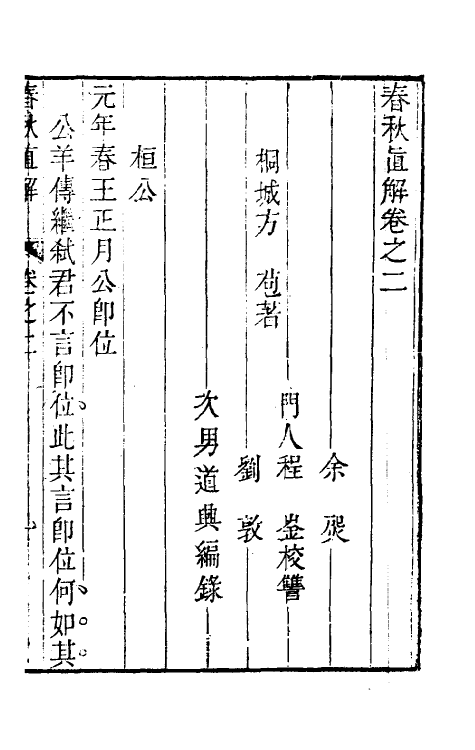 春秋直解卷之二
桐城方　苞著
余　㷼
門人程　崟校讐
劉　敦
次男道興編錄
桓公
元年春王正月公卽位
公羊傳繼弑君不言卽位此其言卽位何如其
春秋直解　卷之二